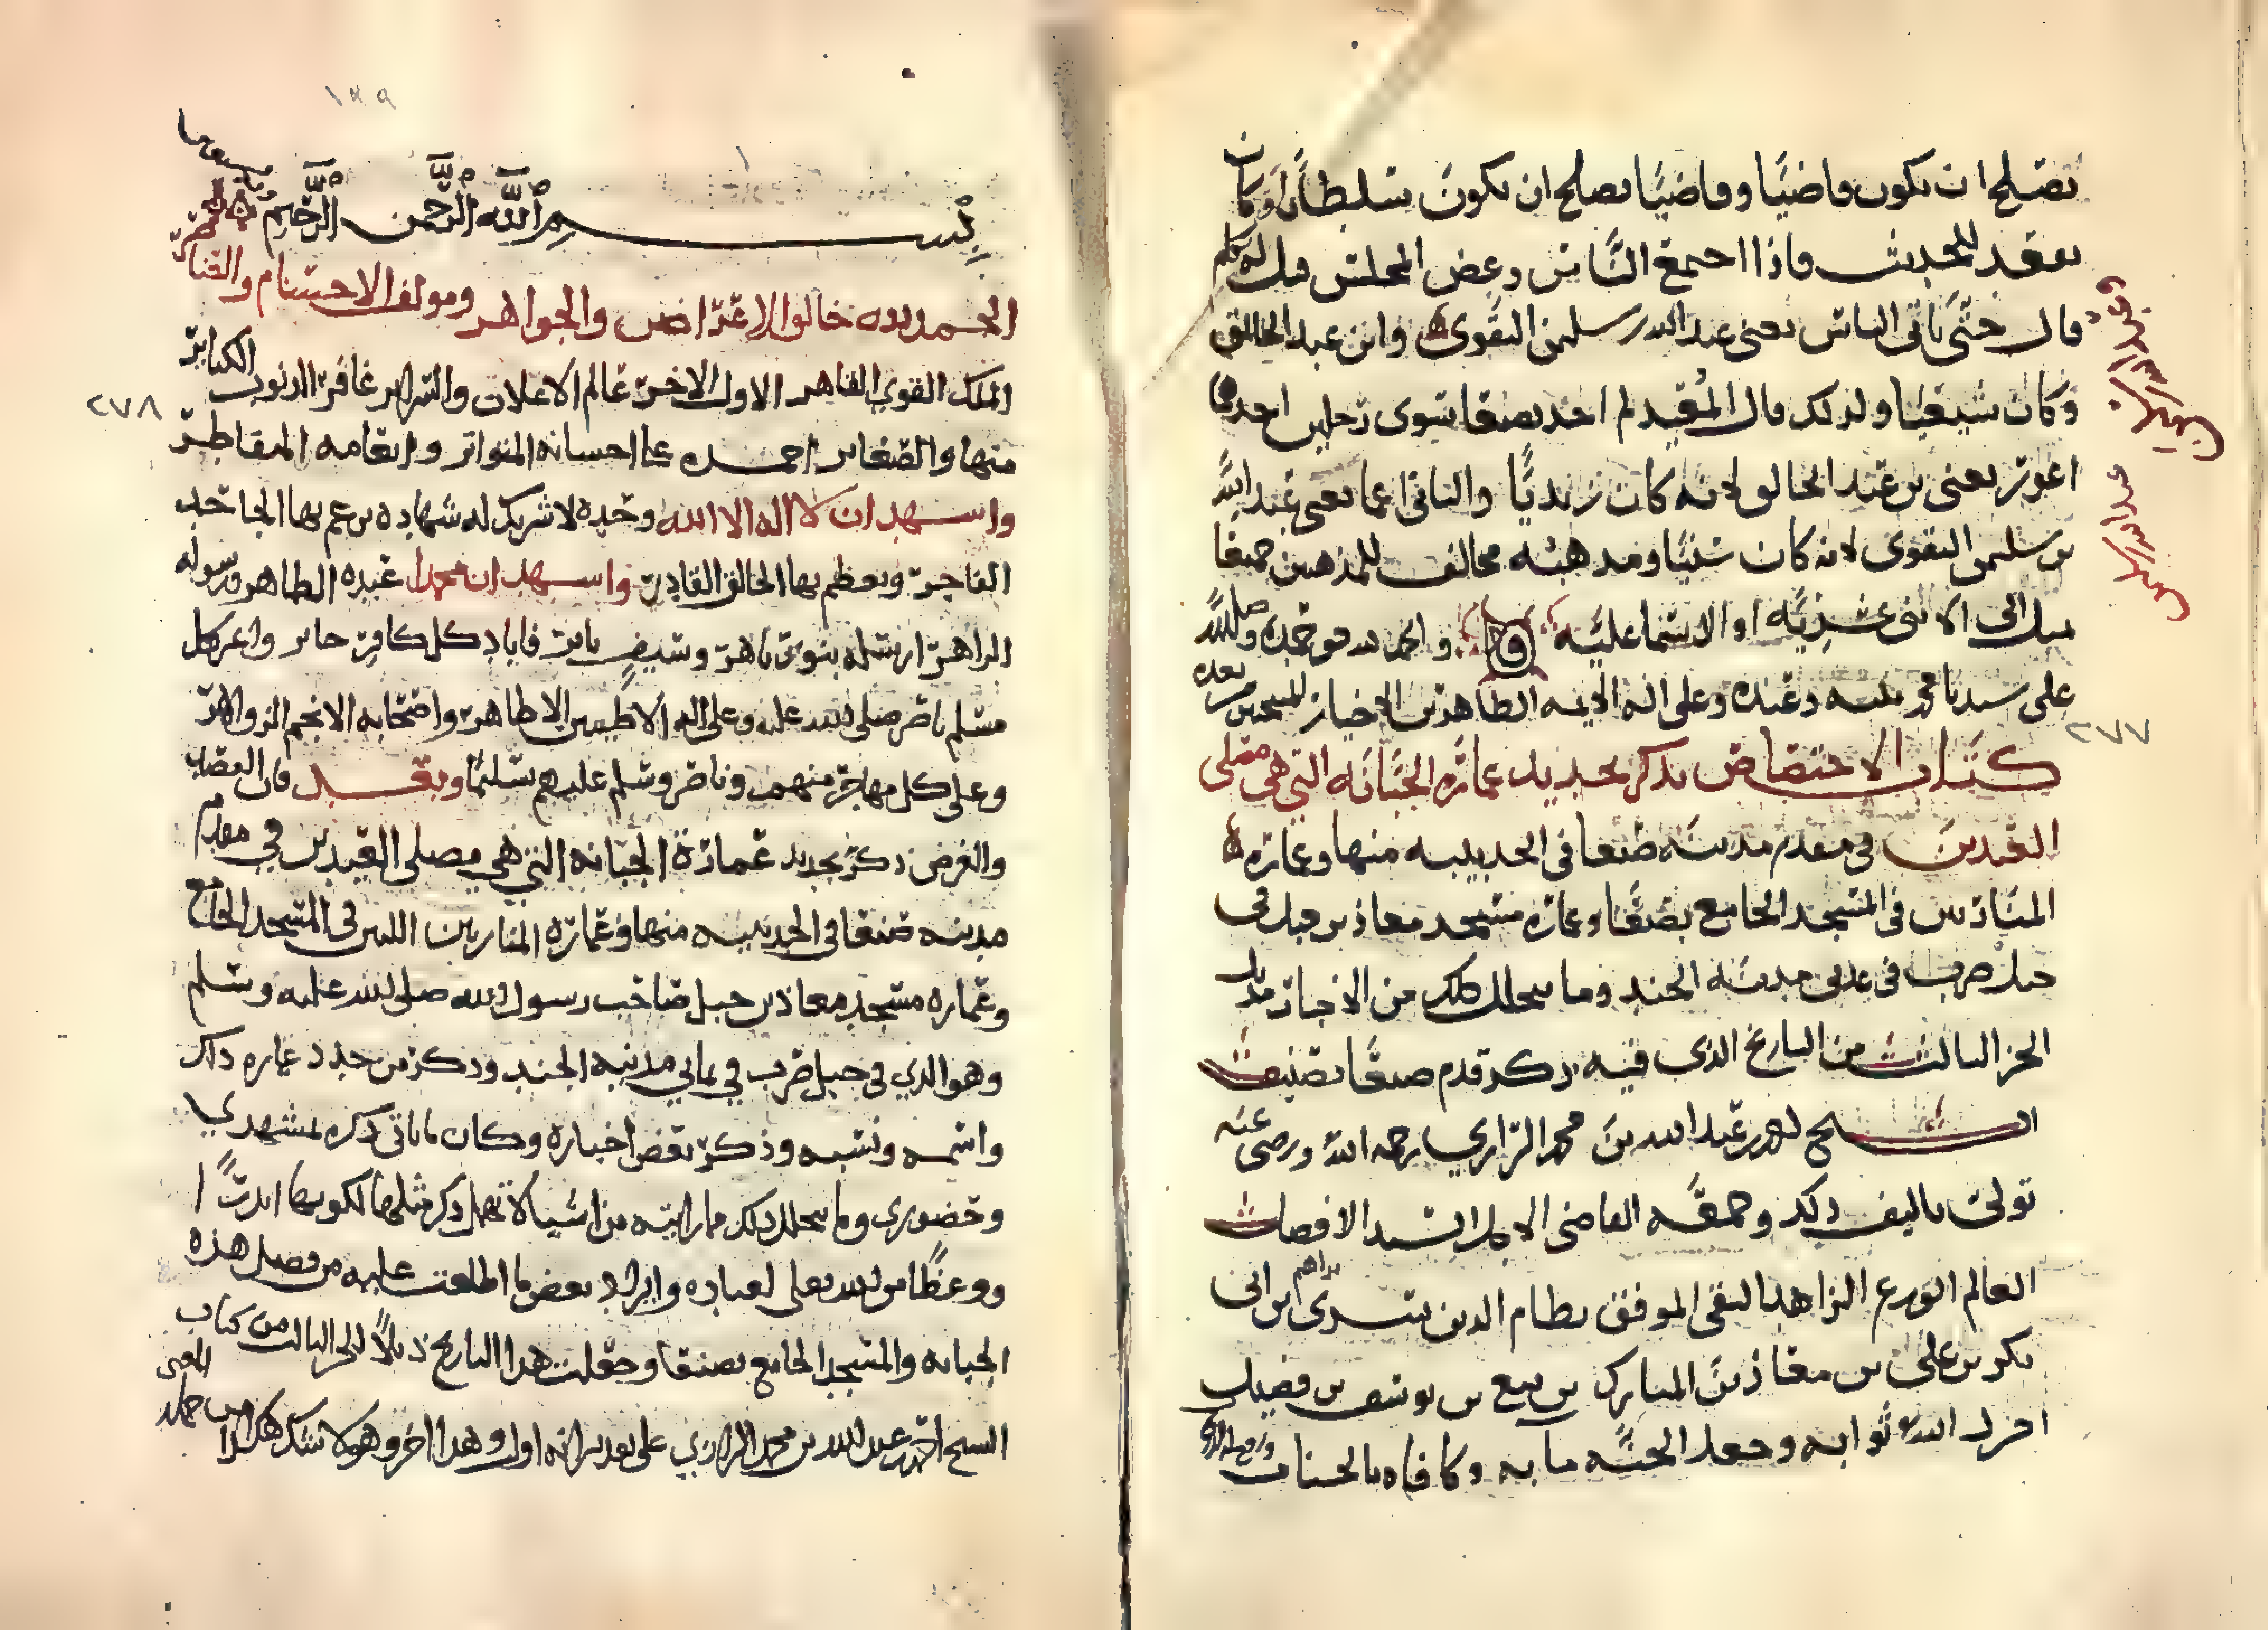 يصلح ان يكون قاضيا وقاضيا يصلح ان يكون سلطانا وكان
يعقد للحديث فاذا اجتمع الناس وغص المجلس قيل له تكلم
قال حتى ياتي الناس يعني عبد الله بن سليمن النقوي وابن عبد الخالق
وكان شيعيا ولذلك قال المفيد لم اجد بصنعا سوى رجلين احدهما
اعور يعني بن عبد الخالق لانه كان زيديا والثاني اعما يعني عبد الله
بن سليمن النقوي لانه كان سنيا ومذهبه مخالف للمذهبين جميعا
ميل الى الاثنى عشريه او الاسماعليه والحمد لله حق حمده وصلى الله
على سيدنا محمد نبيه وعبده وعلى اله الايمه الطاهرين الاخيار المنتجبين من بعده
كتاب الاختصاص بذكر تجديد عمارة الجبانه التي هي مصلى
العيدين في مقدم مدينة صنعا في الجديبيه منها وعمارة
المنارتين في المسجد الجامع بصنعا وعمارة مسجد معاذ بن جبل في
جبل صرب في يماني مدينة الجند وما يتخلل ذلك من الاخبار
الجز الثالث من التاريخ الذي فيه ذكر قدم صنعا تصنيف
الشيخ احمد بن عبد الله بن محمد الرازي رحمه الله ورضي عنه
تولى تاليف ذلك وجمعه القاضي الاجل السيد الافضل
العالم الورع الزاهد التقي الموفق نظام الدين سري بن ابراهيم بن ابي
بكر بن علي بن معاذ بن المبارك بن تبع بن يوسف بن فضيل
اجزل الله ثوابه وجعل الجنه مابه وكافاه بالحسنات
عبد الله بن سليمن
٢٧٧
بسم الله الرحمن الرحيم وبه نستعين
الحمد لله خالق الاعراض والجواهر ومولف الاجسام والعناصر
الملك القوي القاهر الاول الاخر عالم الاعلان والسراير غافر الذنوب الكباير
منها والصغاير احمده على احسانه المتواتر وانعامه المتقاطر
واشهد ان لا اله الا الله وحده لا شريك له شهادة يرغم بها الجاحد
الفاجر ويعظم بها الخالق القادر واشهد ان محمدا عبده الطاهر ورسوله
الزاهر ارسله بنور باهر وسيف باتر فاباد كل كافر جاير واعز كل
مسلم ناصر صلى الله عليه وعلى اله الاطيبين الاطاهر واصحابه الانجم الزواهر
وعلى كل مهاجر منهم وناصر وسلم عليهم تسليما وبعد فان القصد
والغرض ذكر تجديد عمارة الجبانه التي هي مصلى العيدين في مقدم
مدينه صنعا في الجديبيه منها وعمارة المنارتين اللتين في المسجد الجامع
وعماره مسجد معاذ بن جبل صاحب رسول الله صلى الله عليه وسلم
وهو الذي في جبل صرب في يماني مدينه الجند وذكر من جدد عماره ذلك
واسمه ونسبه وذكر بعض اخباره وكان ما ياتي ذكره بمشهدي
وحضوري وما يتخلل ذلك مما رايته من اشيا لا يهمل ذكر مثلها لكونها اثرا
ووعظا من الله تعلى لعباده وايراد بعض ما اطلعت عليه من فضل هذه
الجبانه والمسجد الجامع بصنعا وجعلت هذا التاريخ ذيلا للجز الثالث من كتاب
الشيخ احمد بن عبد الله بن محمد الرازي على تقدير انه اول وهذا اخر
٢٧٨
١٣٩